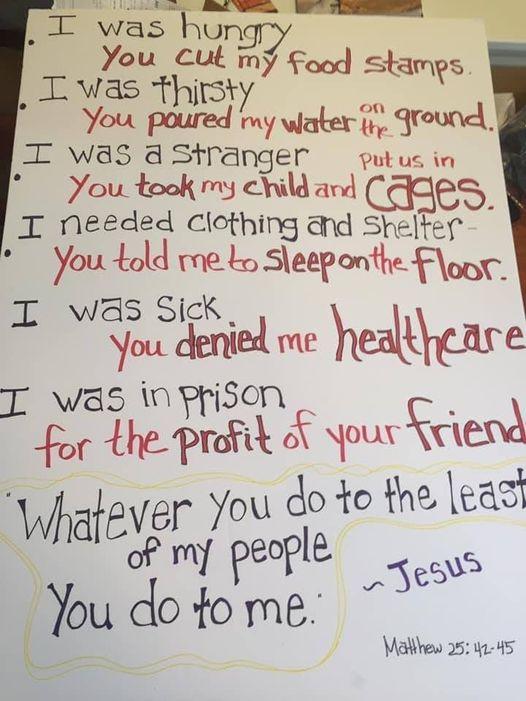 I was hungry
You cut my food stamps.
I was thirsty
You poured my water on the ground.
I was a stranger
You took my child and put us in cages.
I needed clothing and shelter-
You told me to sleep on the floor.
I was sick
You denied me healthcare
I was in prison
for the profit of your friend
"Whatever you do to the least
of my people
You do to me."
~Jesus
Matthew 25:42-45